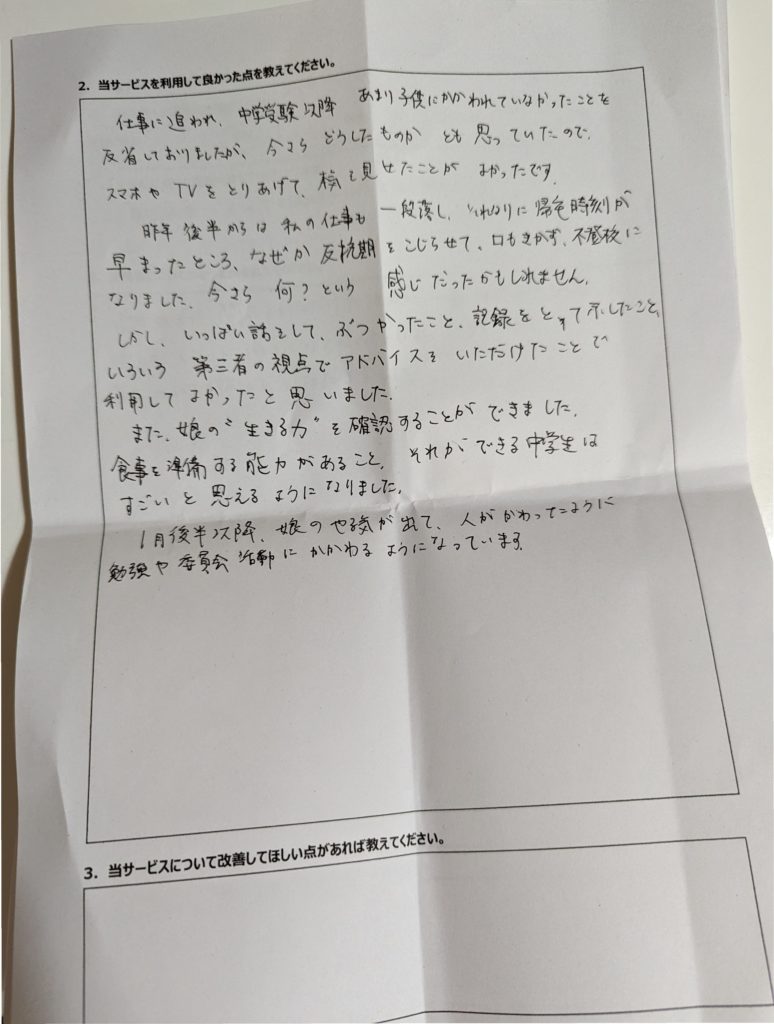 2. 当サービスを利用して良かった点を教えてください。
仕事に追われ、中学受験以降 あまり子供にかかわれていなかったことを
反省しておりましたが、今さら どうしたものか とも思っていたので、
スマホや TVをとりあげて、 見せたことが よかったです。
昨年後半からは 私の仕事も 一段落し、それなりに帰宅時刻が
早まったところ、なぜか反抗期をこじらせて、口もきかず、不登校に
なりました。今さら 何?という 感じだったかもしれません。
しかし、いっぱい話をして、ぶつかったこと、記録をとって示したこと、
いろいろ 第三者の視点でアドバイスを いただけたことで
利用して よかったと思いました。
また、娘の"生きる力"を確認することができました。
食事を準備する能力があること、それができる中学生は
すごいと思えるようになりました。
1月後半以降、娘のやる気が出て、人がかわったように
勉強や委員会活動に かかわる ようになっています。
3. 当サービスについて改善してほしい点があれば教えてください。